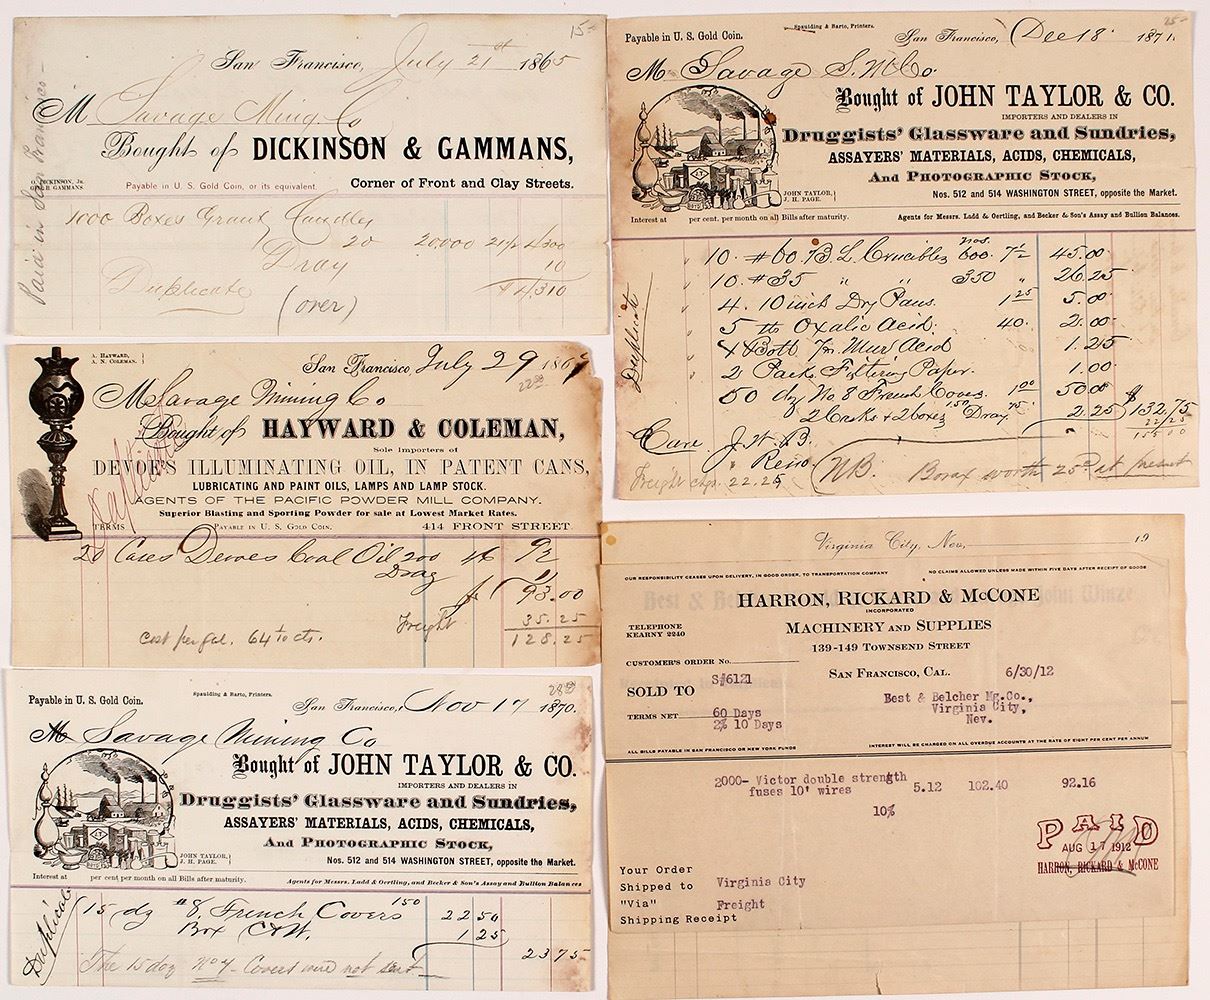 15-
San Francisco, July 21st 1865
M Savage Ming Co
Bought of DICKINSON & GAMMANS,
O. DICKINSON, Jr.
GEO. B GAMMANS.
Payable in U. S. Gold Coin, or its equivalent.
Corner of Front and Clay Streets.
Paid in San Francisco -
1000 Boxes Grant Candles
20 20,000 21½ 4300
Dray 10
$4,310
Duplicate
(over)
A. HAYWARD,
A. N. COLEMAN.
San Francisco, July 29 186
M Savage Mining Co
Bought of HAYWARD & COLEMAN,
Sole Importers of
DEVOE'S ILLUMINATING OIL, IN PATENT CANS,
LUBRICATING AND PAINT OILS, LAMPS AND LAMP STOCK.
AGENTS OF THE PACIFIC POWDER MILL COMPANY.
Superior Blasting and Sporting Powder for sale at Lowest Market Rates.
TERMS PAYABLE IN U. S. GOLD COIN. 414 FRONT STREET.
Duplicate
20 Cases Devoes Coal Oil 200 46 92
Dray 1
$93.00
Freight 35.25
128.25
Cost per gal. 64 1/10 cts.
Payable in U. S. Gold Coin.
Spaulding & Barto, Printers.
28-
San Francisco, Nov 17 1870.
M Savage Mining Co
Bought of JOHN TAYLOR & CO.
IMPORTERS AND DEALERS IN
Druggists' Glassware and Sundries,
ASSAYERS' MATERIALS, ACIDS, CHEMICALS,
And PHOTOGRAPHIC STOCK,
JOHN TAYLOR,
J. H. PAGE.
Nos. 512 and 514 WASHINGTON STREET, opposite the Market.
Interest at per cent. per month on all Bills after maturity.
Agents for Messrs. Ladd & Oertling, and Becker & Son's Assay and Bullion Balances
Duplicate
15 dz #8. French Covers 150 22 50
Box 1 25
23 75
The 15 doz No 7 Covers were not sent
Payable in U. S. Gold Coin.
Spaulding & Barto, Printers.
25-
San Francisco, Dec 18 1871.
M Savage S. M Co.
Bought of JOHN TAYLOR & CO.
IMPORTERS AND DEALERS IN
Druggists' Glassware and Sundries,
ASSAYERS' MATERIALS, ACIDS, CHEMICALS,
And PHOTOGRAPHIC STOCK,
JOHN TAYLOR,
J. H. PAGE.
Nos. 512 and 514 WASHINGTON STREET, opposite the Market.
Interest at per cent. per month on all Bills after maturity.
Agents for Messrs. Ladd & Oertling, and Becker & Son's Assay and Bullion Balances.
Duplicate
10. #60. B. L. Crucibles nos. 600. 7½ 45.00
10. #35 " " 350 " 26.25
4. 10 inch Dry Pans. 1 25 5.00
5 lbs Oxalic Acid. 40. 2.00
4 Bott Mur Acid 1.25
2 Packs Filtering Paper. 1.00
50 dz No 8 French Covers. 1 00 50.00
2 Casks & 2 boxes 1.50 Dray 75 2.25 $132.75
22/25
155 00
Care J. W. B.
" Reno
Freight chgs. 22.25
(N.B. Borax worth 25 at present
Virginia City, Nev., 19
OUR RESPONSIBILITY CEASES UPON DELIVERY, IN GOOD ORDER, TO TRANSPORTATION COMPANY
NO CLAIMS ALLOWED UNLESS MADE WITHIN FIVE DAYS AFTER RECEIPT OF GOODS
HARRON, RICKARD & McCONE
INCORPORATED
MACHINERY AND SUPPLIES
TELEPHONE
KEARNY 2240
139-149 TOWNSEND STREET
CUSTOMER'S ORDER No.
S#6121
SAN FRANCISCO, CAL. 6/30/12
SOLD TO
Best & Belcher Mg.Co.,
Virginia City,
Nev.
TERMS NET 60 Days
2% 10 Days
ALL BILLS PAYABLE IN SAN FRANCISCO OR NEW YORK FUNDS
INTEREST WILL BE CHARGED ON ALL OVERDUE ACCOUNTS AT THE RATE OF EIGHT PER CENT PER ANNUM
2000- Victor double strength
fuses 10' wires 5.12 102.40 92.16
10%
PAID
AUG 17 1912
HARRON, RICKARD & McCONE
Your Order
Shipped to Virginia City
"Via" Freight
Shipping Receipt